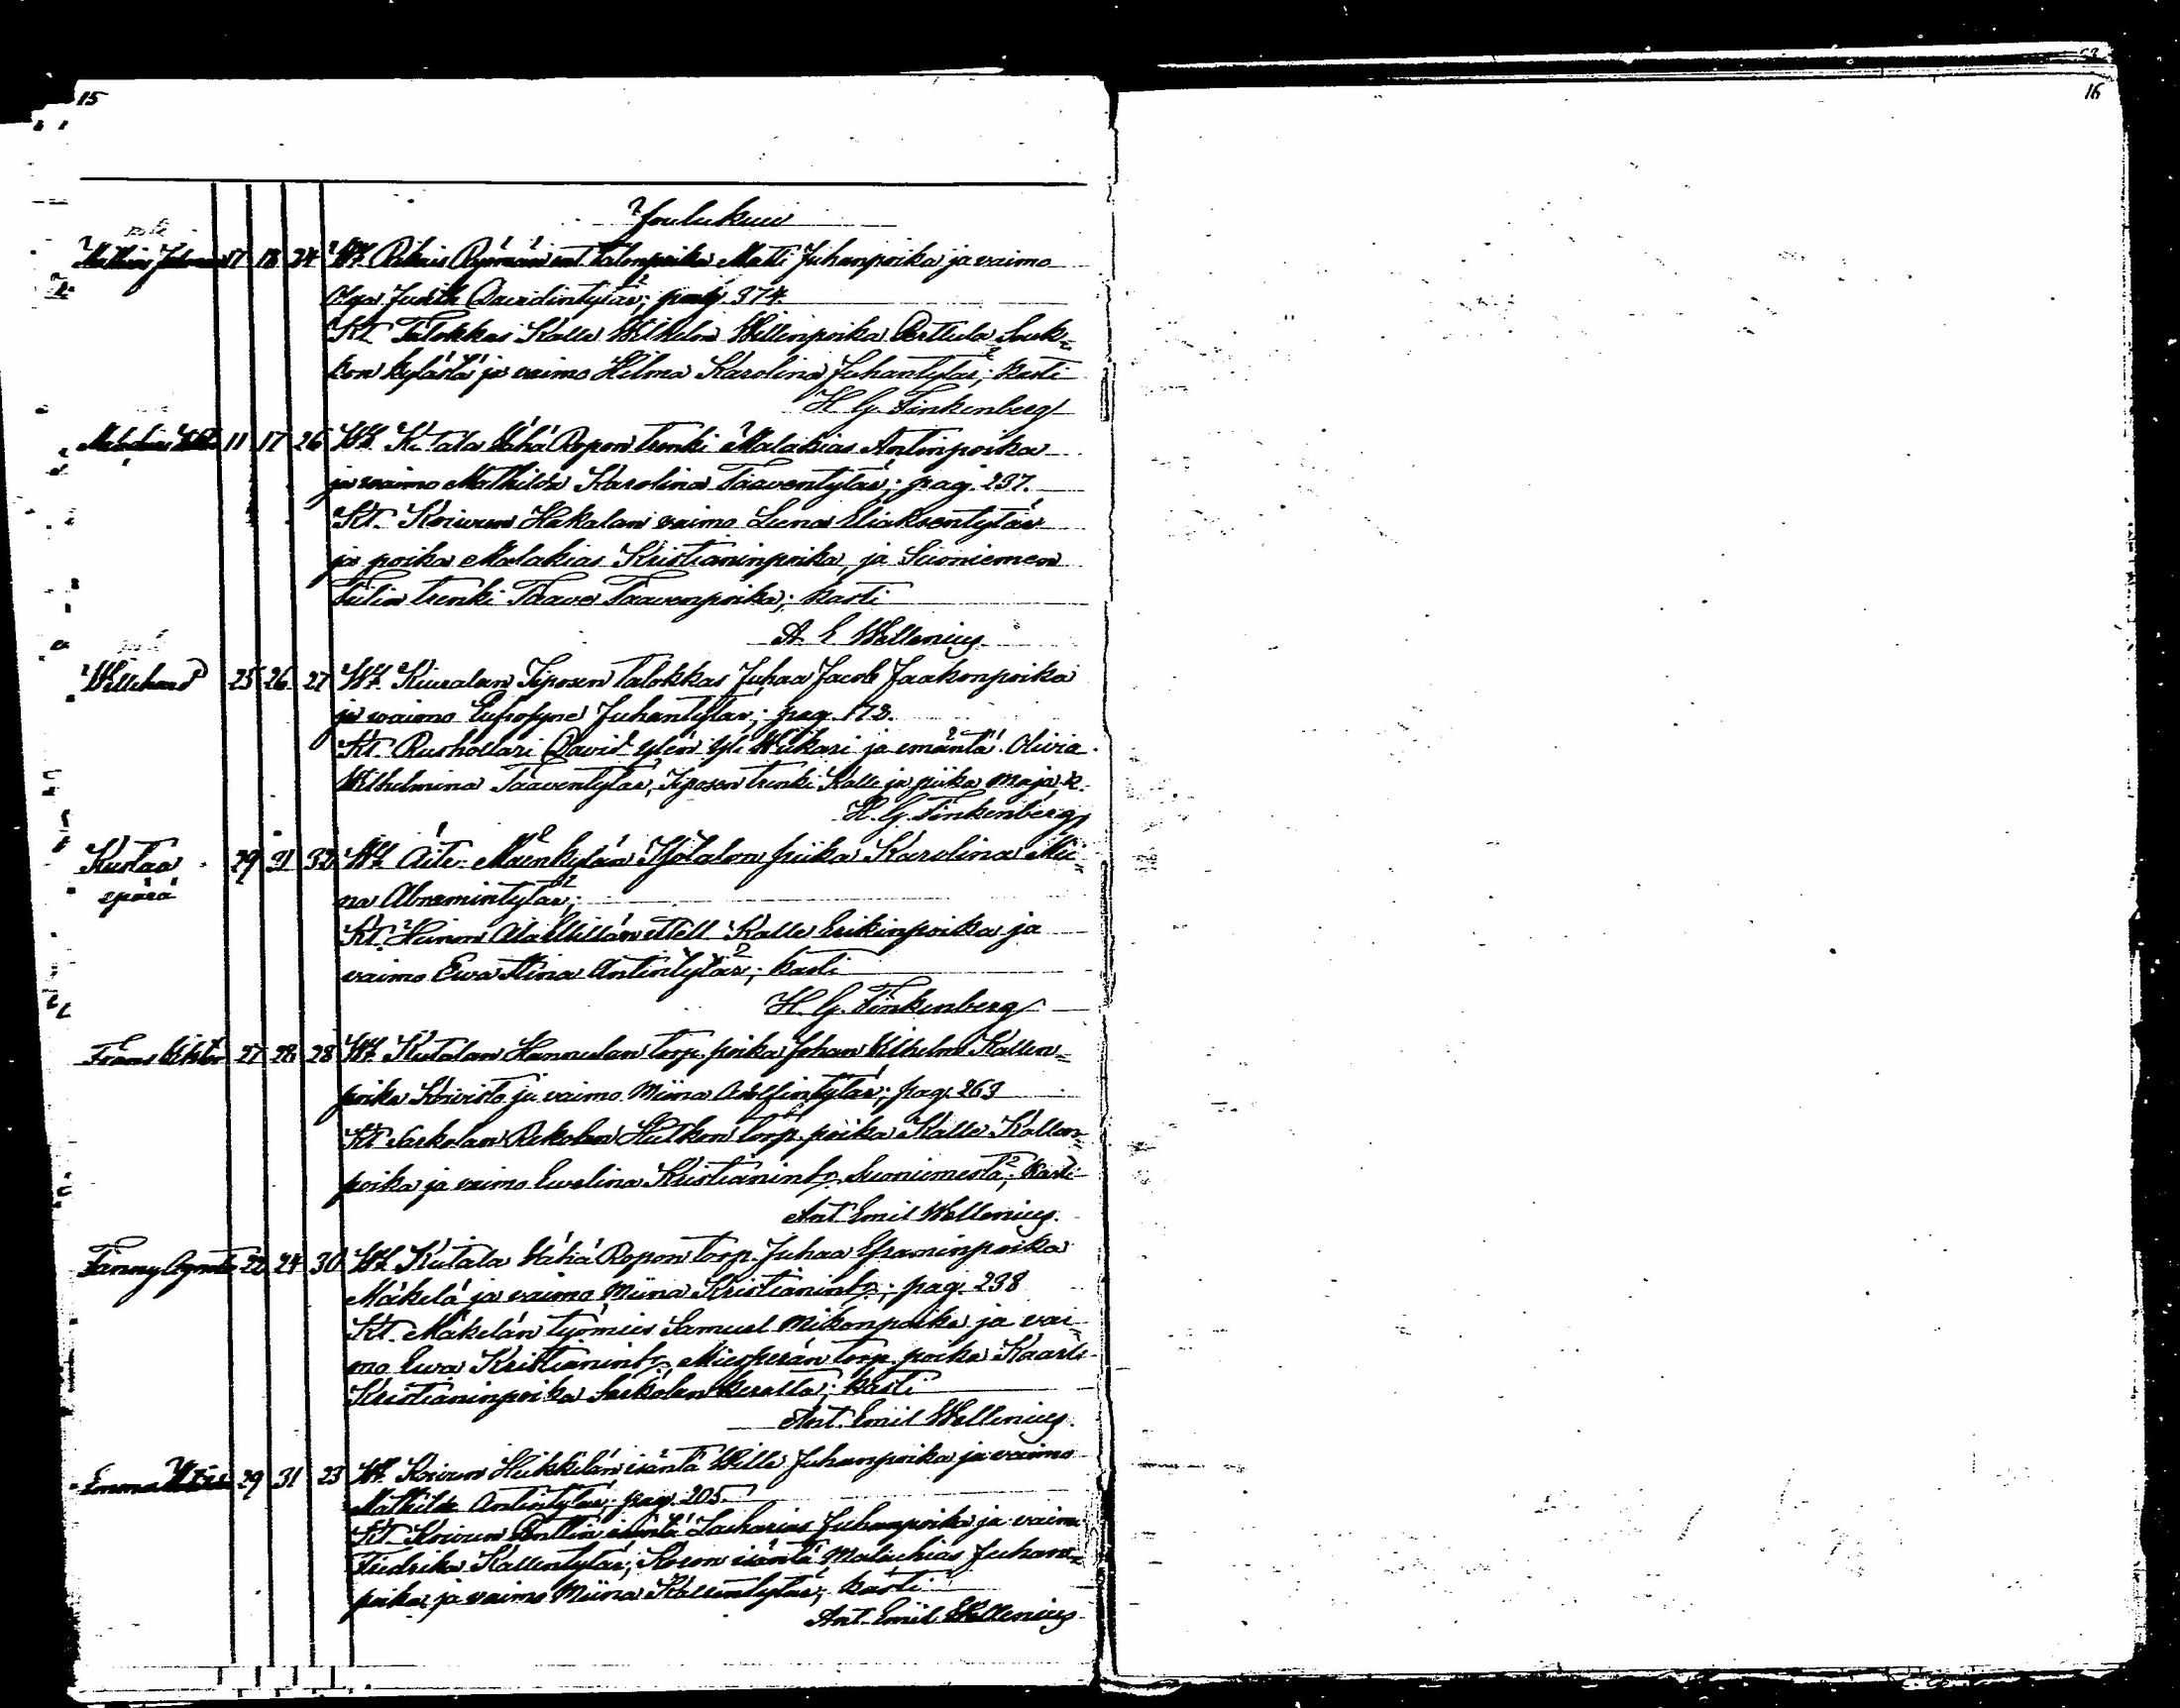 15
16
Joulukuu
17 18 24 Wt. Talonpoika Matti Juhanpoika ja vaimo
Olga Judith Davidintytär; pag. 374.
Kt. Talokkas Kalle Wilhelm Willenpoika Perttula Sark-
kon kylästä ja vaimo Hilma Karolina Juhantytär; kasti
H. G. Finkenberg
11 17 26 Wt. Kutala Vähä Ropon trenki Malakias Antinpoika
ja vaimo Mathilda Karolina Taaventytär; pag. 237.
Kt. Koivun Hakalan vaimo Leena Eliaksentytär
ja poika Malakias Kristianinpoika, ja Suoniemen
trenki Taave Taavenpoika; kasti
A. E. Wallenius.
Willehard 25 26 27 Wt. Kiuralan Siposen talokkas Juhaa Jacob Jaakonpoika
ja vaimo Eufrosyne Juhantytär; pag. 178.
Kt. Rusthollari David Ylén Yli Wiikari ja emäntä Olivia
Wilhelmina Taaventytär, Siposen trenki Kalle ja piika Maja; k.
H. G. Finkenberg
Kustaa 29 31 32 Wt. Äite: Mäenkylän Isotalon piika Karolina Mii-
epärä
na Abramintytär;
Kt. Heinon Ala Kalle Erikinpoika ja
vaimo Ewa Stina Antintytär; kasti
H. G. Finkenberg
Frans Viktor 27 28 28 Wt. Kutalan Hannulan torp. poika Johan Vilhelm Kallen-
poika Koivisto ja vaimo Miina Adolfintytär; pag. 263
Kt. Sarkolan Rekolan torp. poika Kalle Kallen-
poika ja vaimo Ewelina Kristianint:r Suoniemestä; kasti
Ant. Emil Wallenius.
Fanny 22 24 30 Wt. Kutala Vähä Ropon torp. Juhaa Eframinpoika
Mäkelä ja vaimo Miina Kristianint:r; pag. 238
Kt. Mäkelän työmies Samuel Mikonpoika ja vai-
mo Ewa Kristianint:r, torp. poika Kaarle
Kristianinpoika Sarkolan; kasti
Ant. Emil Wallenius.
Emma 29 31 23 Wt. Koivun Heikkilän isäntä Wille Juhanpoika ja vaimo
Mathilda Antintytär; pag. 205
Kt. Koivun Penttin isäntä Zacharias Juhanpoika ja vaimo
Fredrika Kallentytär; isäntä Malachias Juhan-
poika ja vaimo Miina Kallentytär; kasti
Ant. Emil Wallenius